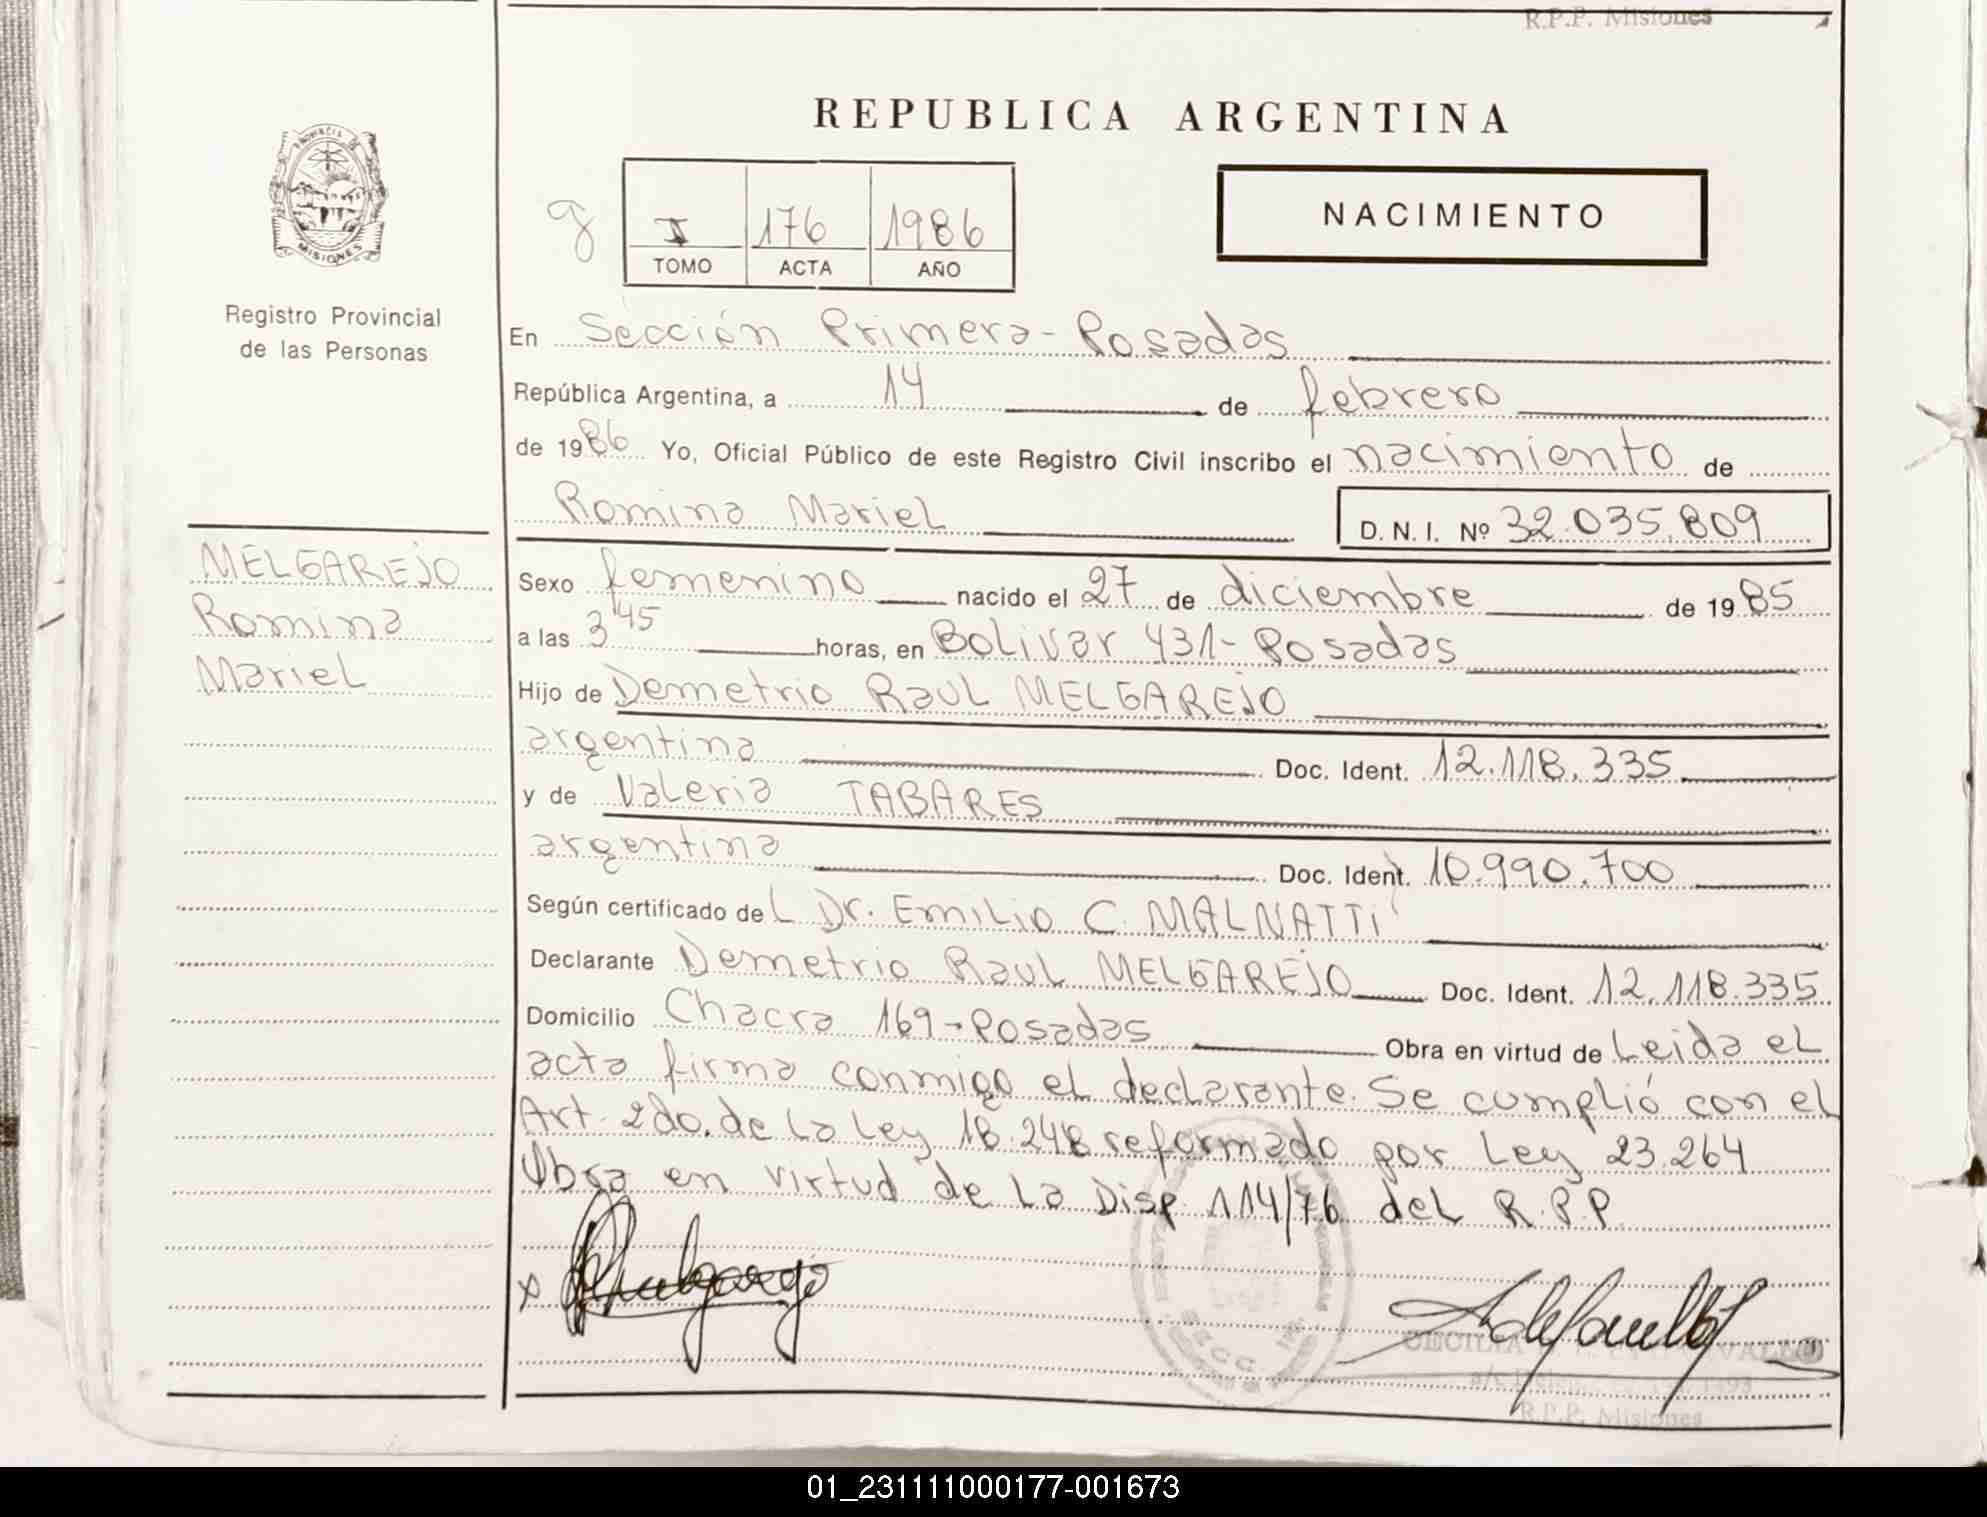 R.P.P. Misiones
REPUBLICA ARGENTINA
PROVINCIA DE
MISIONES
Registro Provincial
de las Personas
I 176 1986
TOMO ACTA AÑO
NACIMIENTO
En Sección Primera - Posadas
República Argentina, a 14 de febrero
de 1986 Yo, Oficial Público de este Registro Civil inscribo el nacimiento de
Romina Mariel D. N. I. Nº 32.035.809
MELGAREJO
Romina
Mariel
Sexo femenino nacido el 27 de diciembre de 1985
a las 3 45 horas, en Bolivar 431 - Posadas
Hijo de Demetrio Raul MELGAREJO
argentina Doc. Ident. 12.118.335
y de Valeria TABARES
argentina Doc. Ident. 10.990.700
Según certificado del Dr. Emilio C. MALNATTi
Declarante Demetrio Raul MELGAREJO Doc. Ident. 12.118.335
Domicilio Chacra 169 - Posadas Obra en virtud de Leida el
acta firma conmigo el declarante. Se cumplió con el
Art. 2do. de la Ley 18.248 reformado por Ley 23.264
Obra en virtud de la Disp. 114/76 del R.P.P.
x
CECILIA
R.P.P. Misiones
01_231111000177-001673